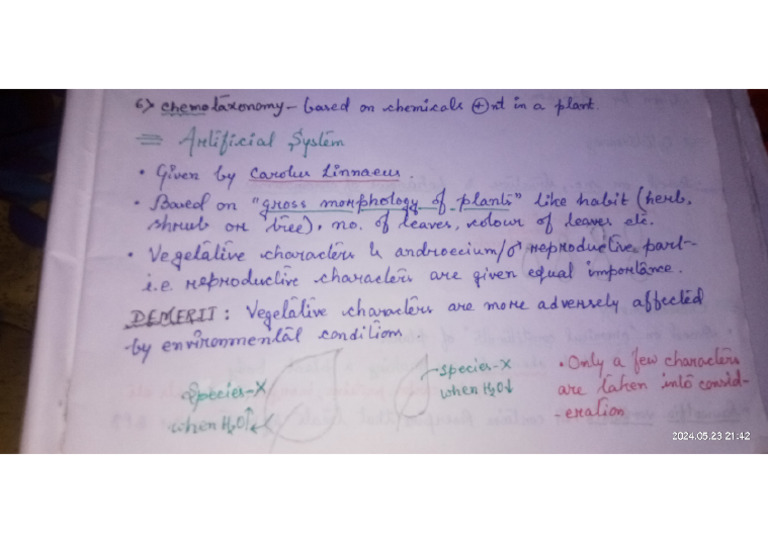 6> chemotaxonomy - based on chemicals ⊕nt in a plant.
= Artificial System
• Given by Carolus Linnaeus.
• Based on "gross morphology of plants" like habit (herb,
shrub or tree), no. of leaves, colour of leaves etc.
• Vegetative characters & androecium/♂ reproductive part-
i.e. reproductive characters are given equal importance.
DEMERIT: Vegetative characters are more adversely affected
by environmental conditions.
Species-X
when H₂O↑
Species-X
when H₂O↓
• Only a few characters
are taken into consid-
-eration
2024.05.23 21:42